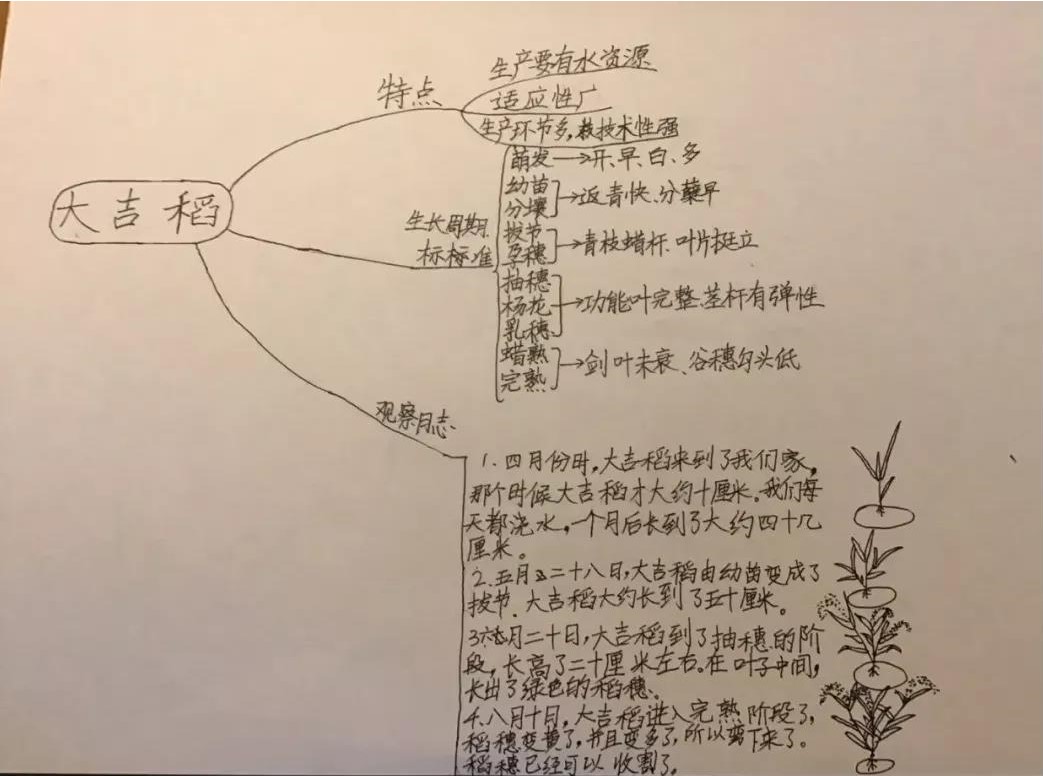 大吉稻
特点
生产要有水资源
适应性广
生产环节多,栽技术性强
生长周期
标标准
萌发→开、早、白、多
幼苗
分壤
→返青快、分蘖早
拔节
孕穗
→青枝蜡杆、叶片挺立
抽穗
杨花
乳穗
→功能叶完整、茎杆有弹性
蜡熟
完熟
→剑叶未衰、谷穗勾头低
观察日志
1.四月份时,大吉稻来到了我们家,
那个时候大吉稻才大约十厘米。我们每
天都浇水,一个月后长到了大约四十几
厘米。
2.五月二十八日,大吉稻由幼苗变成了
拔节.大吉稻大约长到了五十厘米。
3.六月二十日,大吉稻到了抽穗的阶
段,长高了二十厘米左右。在叶子中间,
长出了绿色的稻穗。
4.八月十月,大吉稻进入完熟阶段了,
稻穗变黄了,并且变多了,所以弯下来了。
稻穗已经可以收割了。